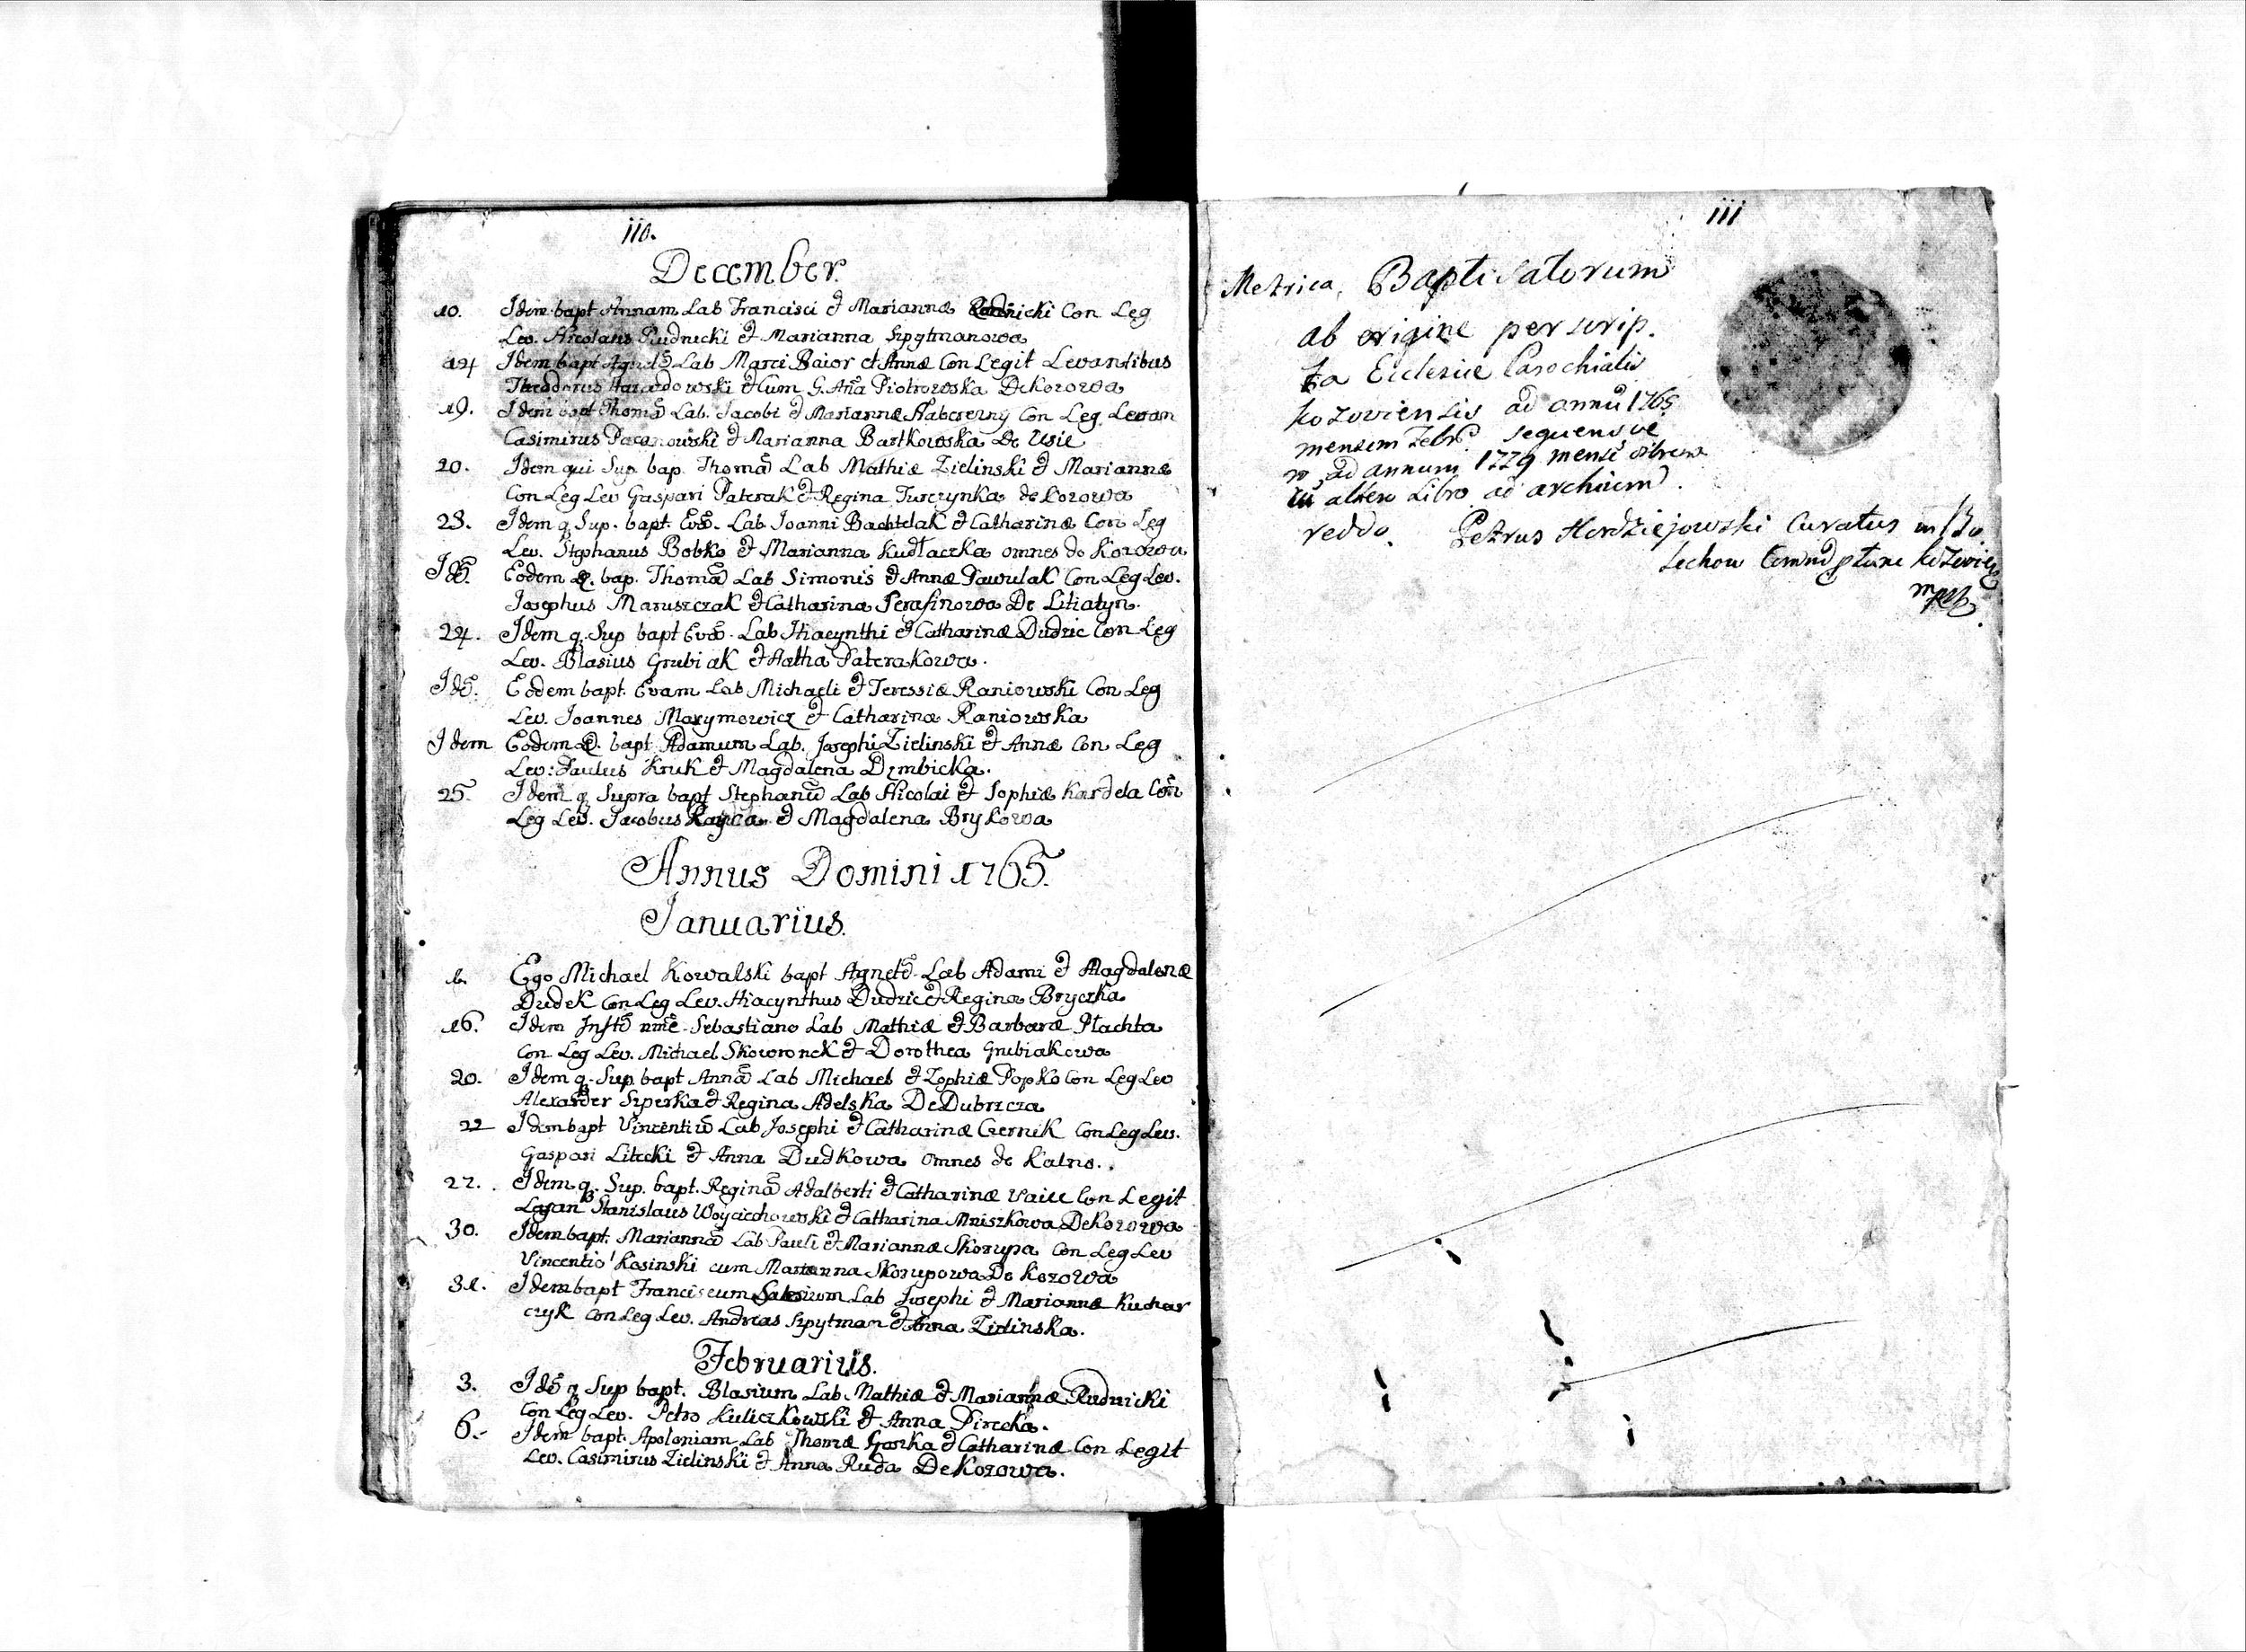 110.
December.
10. Idem bapt Annam Lab Francisci & Mariannæ Rudnicki Con Leg
Lev. Nicolaus Rudnicki & Marianna Szpytmanowa
14 Idem bapt Agnetē Lab Marci Baior et Annæ Con Legit Levantibus
Theodorus & Cum G. Aña Piotrowska De Kozowa
19. Idem bapt Thomā Lab. Jacobi & Mariannæ Con Leg Levan
Casimirus & Marianna Bartkowska De Usie
20. Idem qui Sup bap. Thomā Lab Mathiæ Zielinski & Mariannæ
Con Leg Lev Gaspari Paterak & Regina Turczynka de Kozowa
23. Idem q. Sup. bapt. Evā. Lab Joanni Bachtelak & Catharinæ Con Leg
Lev. Stephanus Bobko & Marianna Kudłaczka omnes de Kozowa
Idē. Eodem D. bap. Thomā Lab Simonis & Annæ Pawulak Con Leg Lev.
Josephus Maruszczak & Catharina Serafinowa De Litiatyn.
24. Idem q. Sup bapt Evā. Lab Hiacynthi & Catharinæ Dudzic Con Leg
Lev. Blasius Grubiak & Aatha Paterakowa.
Idē. Eodem bapt. Evam Lab Michaeli & Teressiæ Raniowski Con Leg
Lev. Joannes Maxymowicz & Catharina Raniowska
Idem Eodem D. bapt Adamum Lab. Josephi Zielinski & Annæ Con Leg
Lev: Paulus Kruk & Magdalena Dembicka.
25. Idem q Supra bapt Stephanū Lab Nicolai & Sophiæ Kardela Con
Leg Lev. Jacobus & Magdalena Brykowa
Annus Domini 1765.
Januarius.
6. Ego Michael Kowalski bapt Agnetē Lab Adami & Magdalenæ
Dudek Con Leg Lev. Hiacynthus Dudzic & Regina Bryczka
16. Idem Inftē nme Sebastiano Lab Mathiæ & Barbaræ Płachta
Con Leg Lev. Michael Skowronek & Dorothea Grubiakowa
20. Idem q. Sup. bapt Annā Lab Michael & Zophiæ Popko Con Leg Lev
Alexander Szperka & Regina Adelska De Dubszcza
22 Idem bapt Vincentiū Lab Josephi & Catharinæ Czernik Con Leg Lev.
Gaspari Litecki & Anna Dudkowa omnes de Kalne.
27. Idem q. Sup. bapt. Reginā Adalberti & Catharinæ Con Legit
Stanislaus Woyciechowski & Catharina Mniszkowa De Kozowa
30. Idem bapt. Mariannā Lab Pauli & Mariannæ Skorupa Con Leg Lev
Vincentio Kosinski cum Marianna Skorupowa De Kozowa
31. Idem bapt Franciscum Salesium Lab Josephi & Mariannæ Kuchar
czyk Con Leg Lev. Andreas Szpytman & Anna Zielinska.
Februarius.
3. Idē q Sup bapt. Blasium Lab. Mathiæ & Mariannæ Rudnicki
Con Leg Lev. Petro Kuliczkowski & Anna Pirecka.
6. Idem bapt. Apoloniam Lab Thomæ Goszka & Catharinæ Con Legit
Lev. Casimirus Zielinski & Anna Ruda De Kozowa.
111
Metrica Baptisatorum
ab origine perscrip.
ta Ecclesiæ Parochialis
Kozoviensis ad annū 1765
mensem sequens ve
ro ad annum 1779 mense
in altero Libro ad archivum
reddo. Petrus Hordziejowski Curatus in